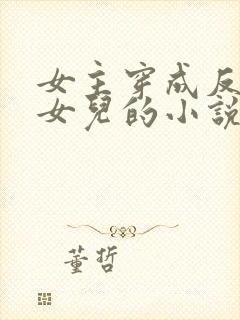 女主穿成反
女兒的小說
董哲